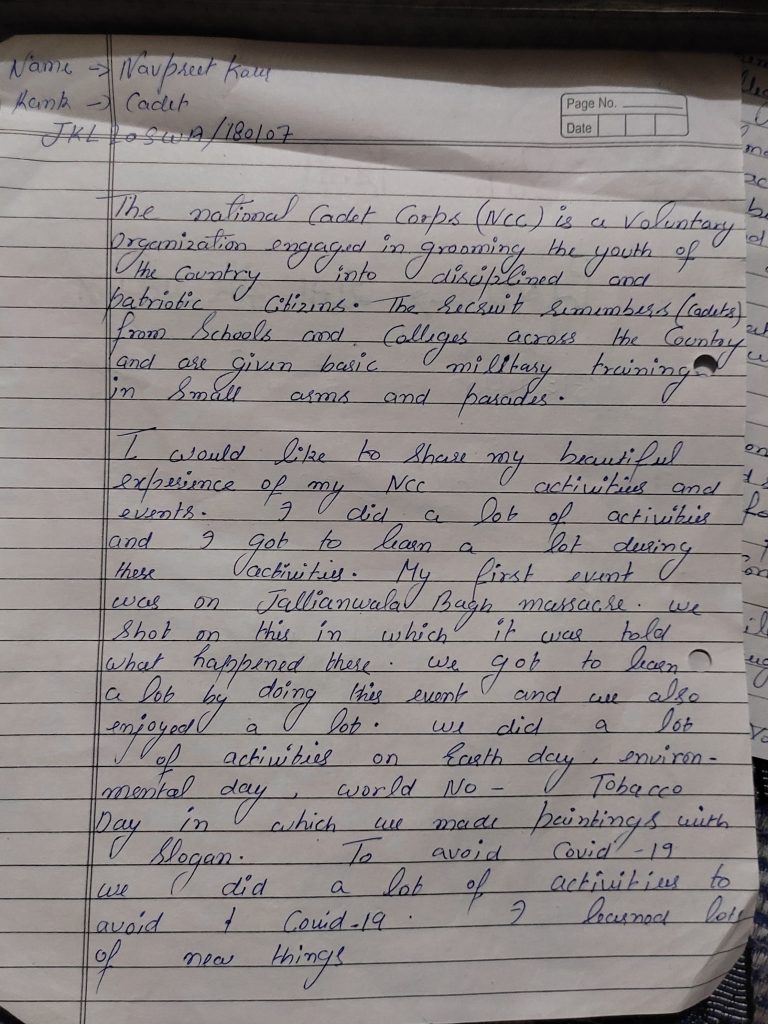 Name → Navpreet Kaur
Rank → Cadet
JKL20SWA/180107
Page No.
Date
The national Cadet Corps (NCC) is a voluntary
Organization engaged in grooming the youth of
the Country into disciplined and
patriotic Citizens. The recruit remembers (cadets)
from Schools and Colleges across the Country
and are given basic military training
in Small arms and parades.
I would like to share my beautiful
experience of my NCC activities and
events. I did a lot of activities
and I got to learn a lot during
these activities. My first event
was on Jallianwala Bagh massacre. we
shot on this in which it was told
what happened there. we got to learn
a lot by doing this event and we also
enjoyed a lot. we did a lot
of activities on Earth day, environ-
mental day, world No - Tobacco
Day in which we made paintings with
Slogan. To avoid Covid-19
we did a lot of activities to
avoid Covid-19. I learned lots
of new things